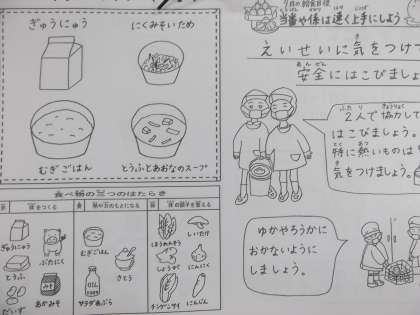 ぎゅうにゅう
にくみそいため
むぎごはん
とうふとあおなのスープ
食べ物の三つのはたらき
体をつくる
黄
熱や力のもとになる
緑
体の調子を整える
ぎゅうにゅう
ぶたにく
とうふ
あかみそ
だいず
むぎごはん
さとう
OIL
サラダあぶら
ほうれんそう
しいたけ
しょうが
にんにく
チンゲンサイ
にんじん
今月の給食目標
当番や係は速く上手にしよう
えいせいに気をつけて
安全にはこびましょう
2人で協力して
はこびましょう。
特に熱いものは
気をつけましょう。
ゆかやろうかに
おかないように
しましょう。